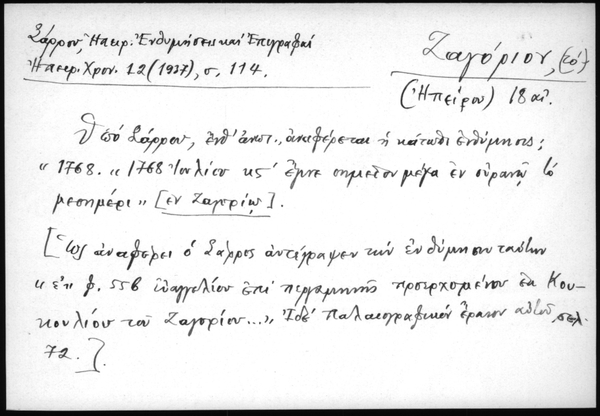 Σάρρου, Ἠπειρ. Ἐνθυμήσεις καὶ Ἐπιγραφαί
Ἠπειρ. Χρον. 12 (1937), σ. 114.
Ζαγόριον, (τό)
(Ἠπείρου) 18 αἰ.
Ὑπὸ Σάρρου, ἔνθ' ἀνωτ., ἀναφέρεται ἡ κάτωθι ἐνθύμησις;
« 1768. « 1768 Ἰουλίου κς΄ ἔγινε σημεῖον μέγα ἐν οὐρανῷ τὸ
μεσημέρι » [ἐν Ζαγορίῳ].
[Ὡς ἀναφέρει ὁ Σάρρος ἀντέγραψεν τὴν ἐνθύμησιν ταύτην
« ἐπὶ φ. 55β εὐαγγελίου ἐπὶ περγαμηνῆς προερχομένου ἐκ Κου-
κουλίου τοῦ Ζαγορίου...», Ἰδὲ Παλαιογραφικὸν ἔρανον αὐτοῦ, σελ.
72.].